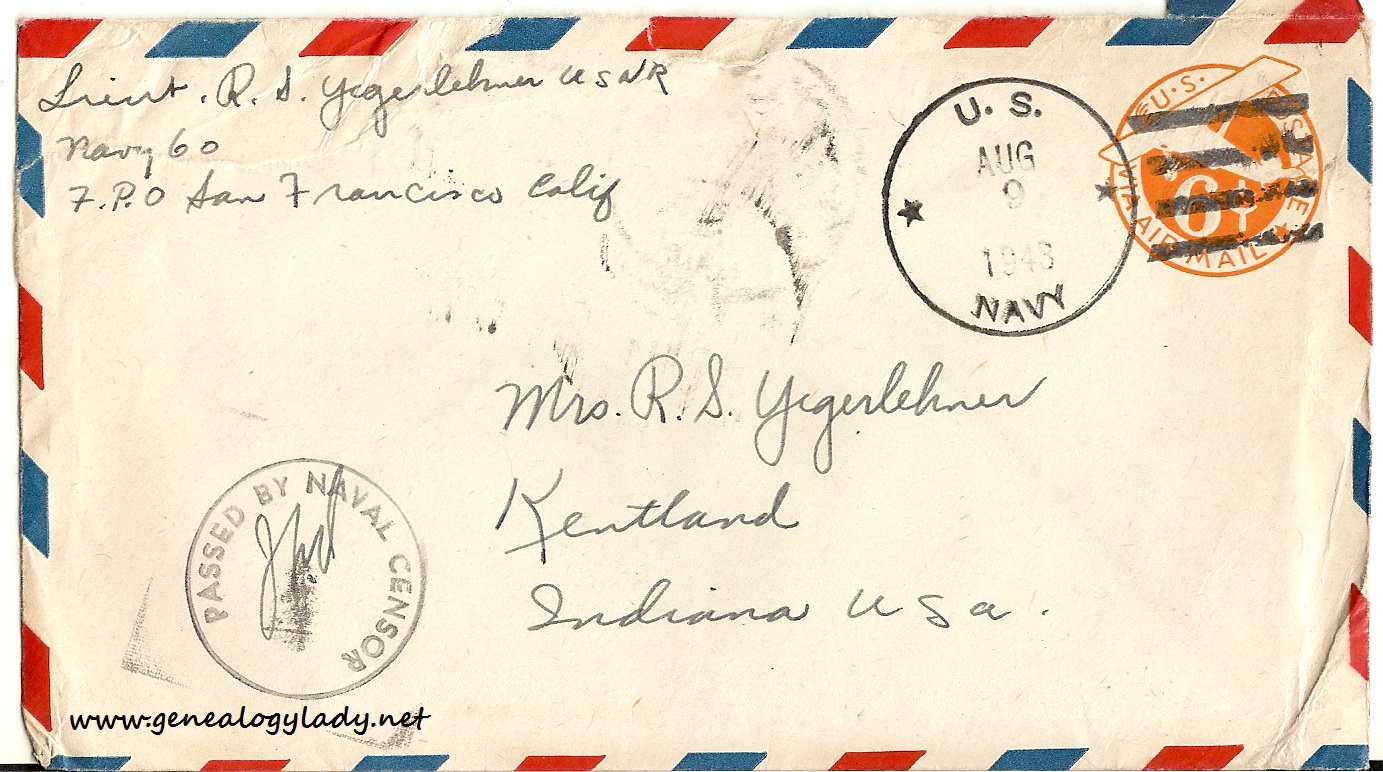 Lieut. R. S. Yegerlehner USNR
Navy 60
F.P.O San Francisco Calif
U. S.
AUG
9
1943
NAVY
U.S. POSTAGE
6¢
VIA AIR MAIL
Mrs. R. S. Yegerlehner
Kentland
Indiana U S a.
PASSED BY NAVAL CENSOR
www.genealogylady.net